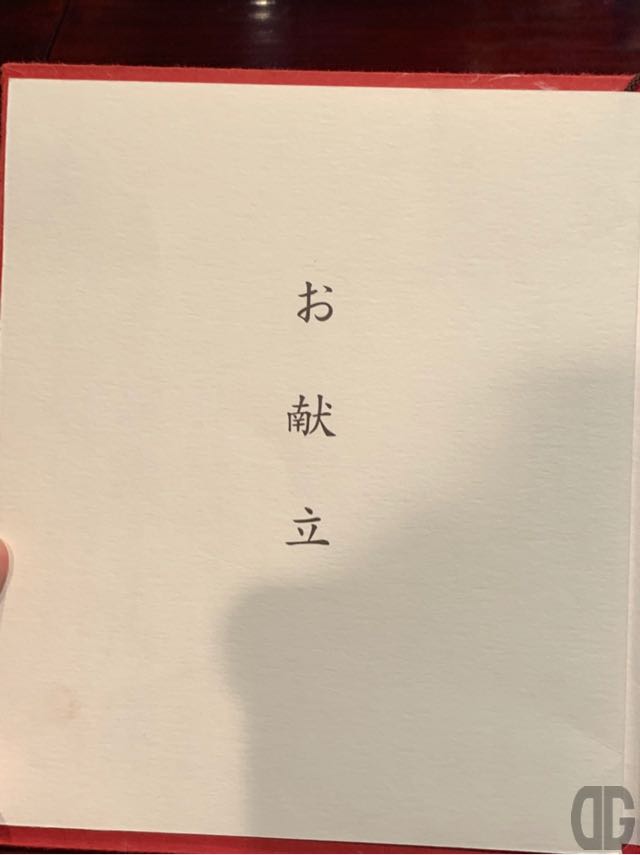 お献立
DG